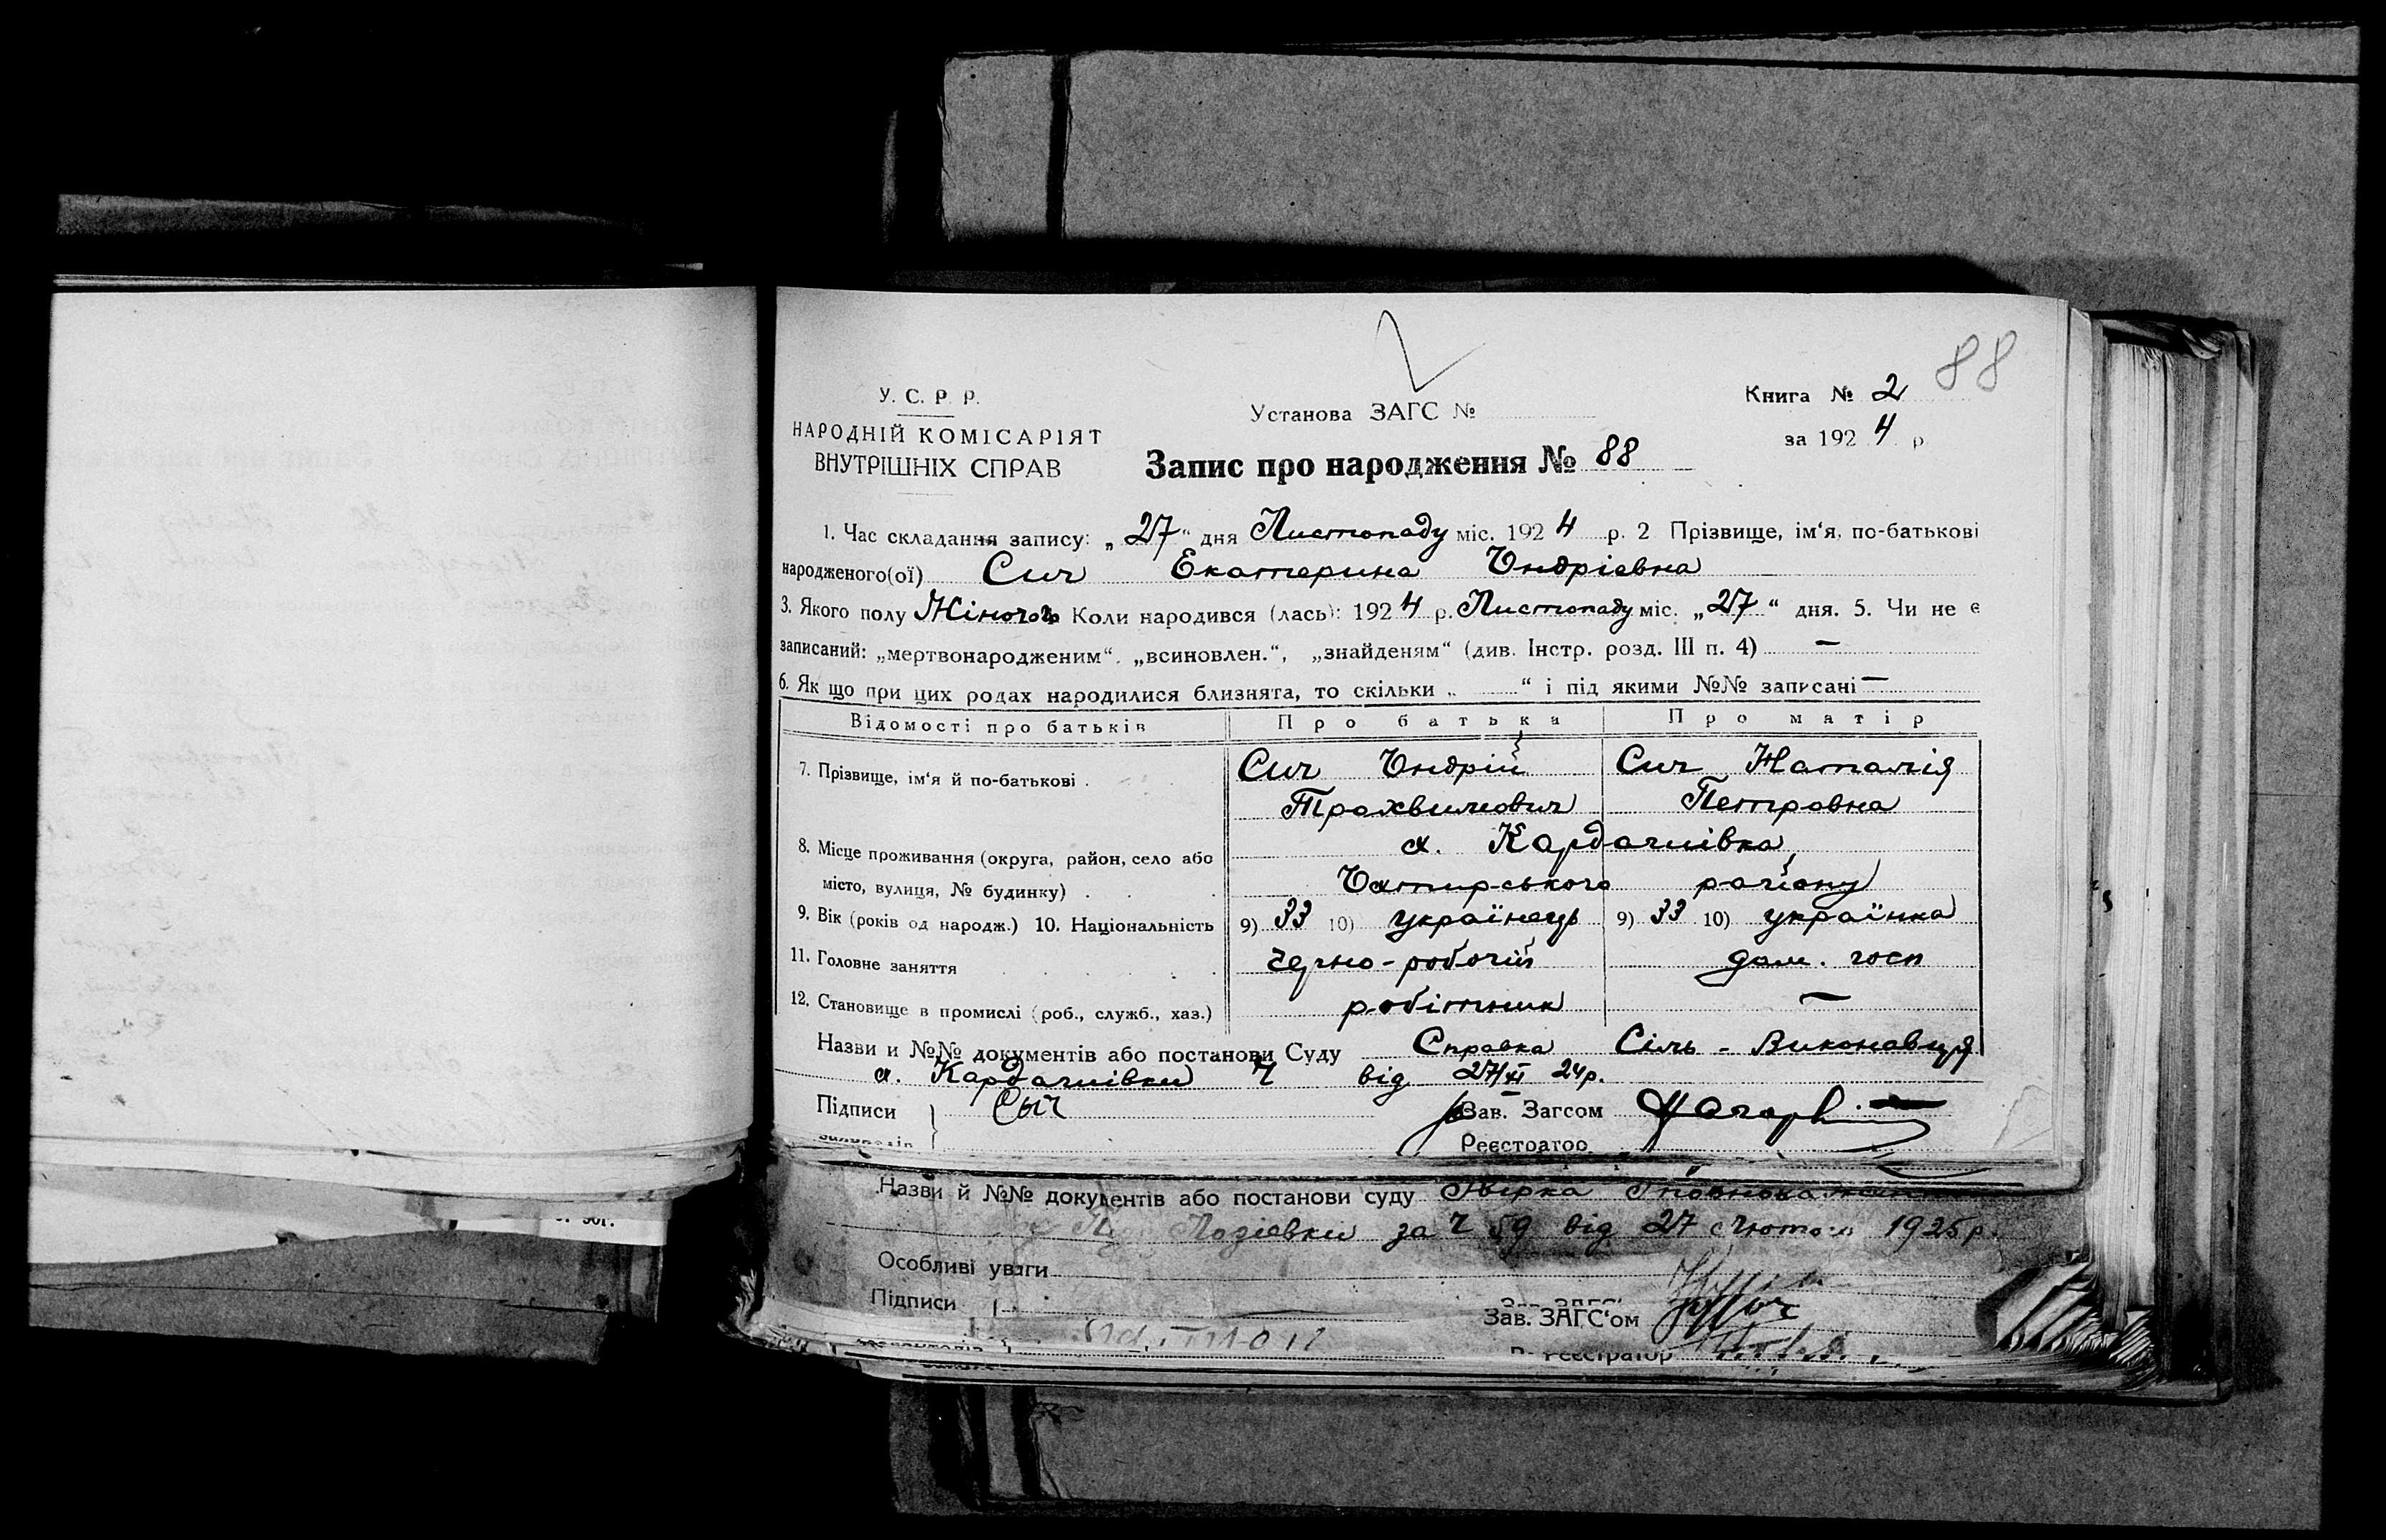 88
У. С. Р. Р.
НАРОДНІЙ КОМІСАРІЯТ
ВНУТРІШНІХ СПРАВ
Установа ЗАГС №
Книга № 2
за 1924 р.
Запис про народження № 88
1. Час складання запису: „27“ дня Листопаду міс. 1924 р. 2 Прізвище, ім‘я, по-батькові
народженого(ої) Сич Екатерина Андрієвна
3. Якого полу Жіночого Коли народився (лась): 1924 р. Листопаду міс. „27“ дня. 5. Чи не є
записаний: „мертвонародженим“, „всиновлен.“, „знайденям“ (див. Інстр. розд. III п. 4) —
6. Як що при цих родах народилися близнята, то скільки „ “ і під якими №№ записані —
Відомості про батьків Про батька Про матір
7. Прізвище, ім‘я й по-батькові . Сич Андрій Сич Наталія
Трохвимович Петровна
8. Місце проживання (округа, район, село або х. Кардашівка,
місто, вулиця, № будинку) . . Охтирського району
9. Вік (років од народж.) 10. Національність 9) 33 10) українець 9) 33 10) українка
11. Головне заняття чорно-робочий дом. госп
12. Становище в промислі (роб., служб., хаз.) робітник —
Назви и №№ документів або постанови Суду Справка Сіль-Виконавця
х. Кардашівки Ч від 27/XI 24р.
Підписи Сыч Зав. Загсом
Реєстратор
Назви й №№ документів або постанови суду
за Ч 59 від 27 лютого 1925р.
Особливі уваги
Підписи
Зав. ЗАГС‘ом
Реєстратор